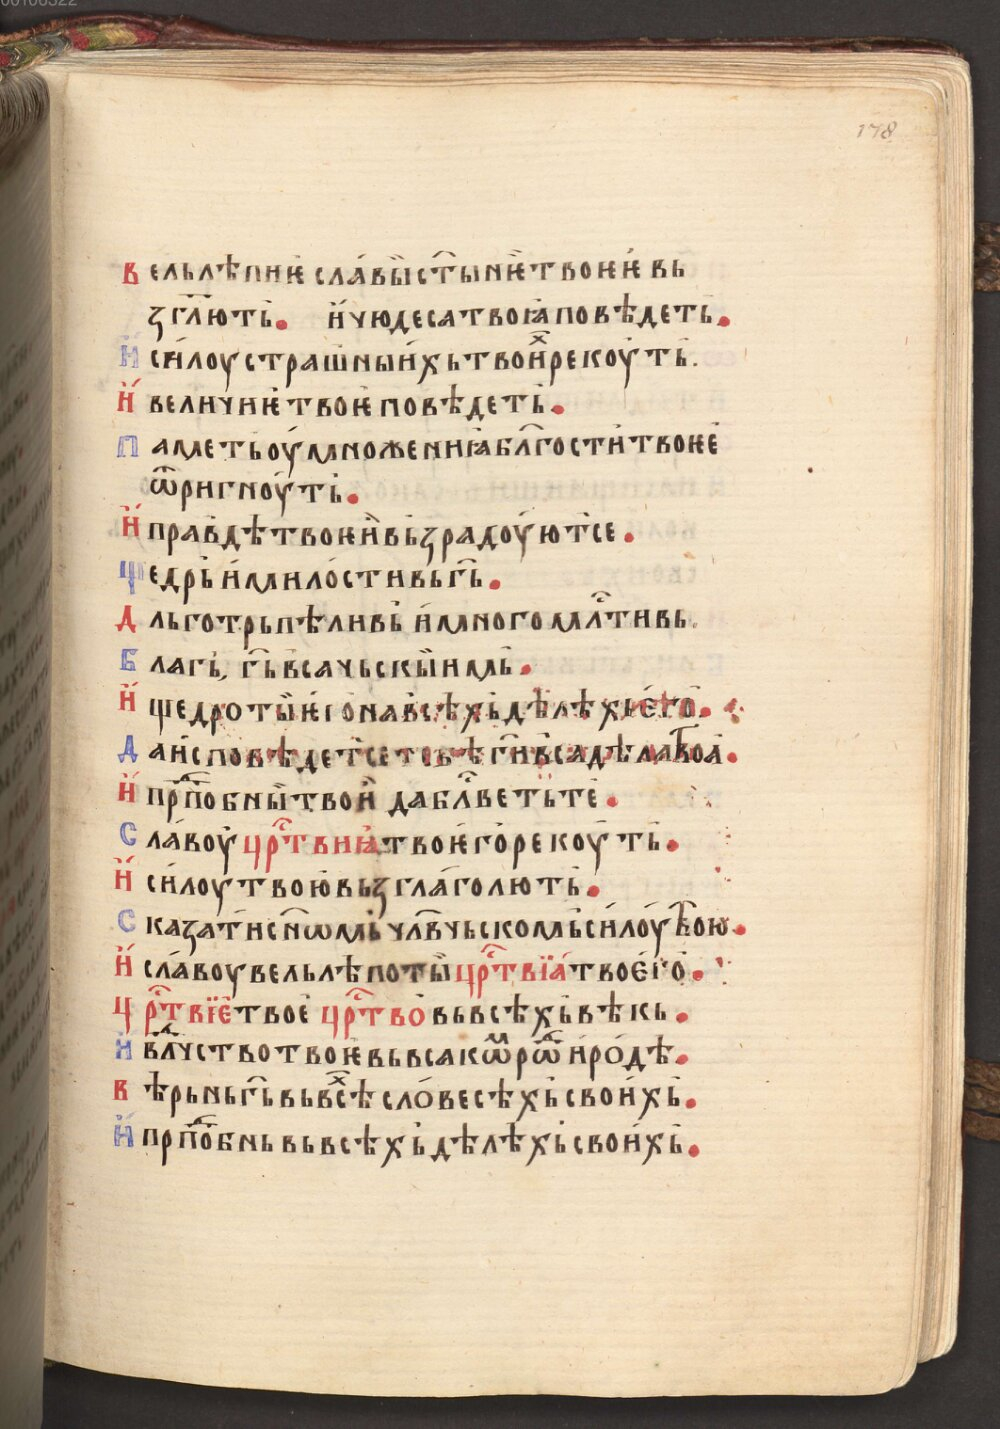 178
вельлѣпиѥ сла́вы ст҃ыниѥ твоѥѥ вь
ꙁгл҃ють. и҆ чюдеса твоꙗ повѣдеть.
И҆ си́лоу страшныи́хь твоихⷯ рекоу́ть.
И҆ величиѥ твоѥ повѣдеть.
Паметь оу҆множениꙗ бл҃гости твоѥе
ѿригноу́ть.
И҆ правдѣ твоѥи вьꙁрадоу́ютсе.
Щедрь и҆ ми́лостивь г҃ь.
Дльготрьпѣливь и҆ многомлⷭ҇тивь.
Благь, г҃ь всячьскыимь.
И҆ щедроты ѥго на всѣхь дѣлѣхь е҆го.
Да и҆сповѣдетсе тебѣ г҃и вса дѣла твоа.
И҆ прⷣпⷪ҇бныи твои да блⷭ҇веть те.
Славоу црⷭ҇твиꙗ твоѥго рекоу́ть.
И҆ си́лоу твою вьꙁглаголють.
Скаꙁати сн҃ѡмь чл҃вчьскомь си́лоу твою.
И҆ сла́воу вельлѣпоты црⷭ҇твїа твоего.
Црⷭ҇твїе твое црⷭ҇тво вь всѣхь вѣкь.
И҆ влⷣчство твоѥ вь всякѡмь рѡдѣ и ро́дѣ.
Вѣрьнь г҃ь вь всѣхⷯ словесѣхь свои́хь.
И҆ прпⷣобнь вь всѣхь дѣлѣхь свои́хь.